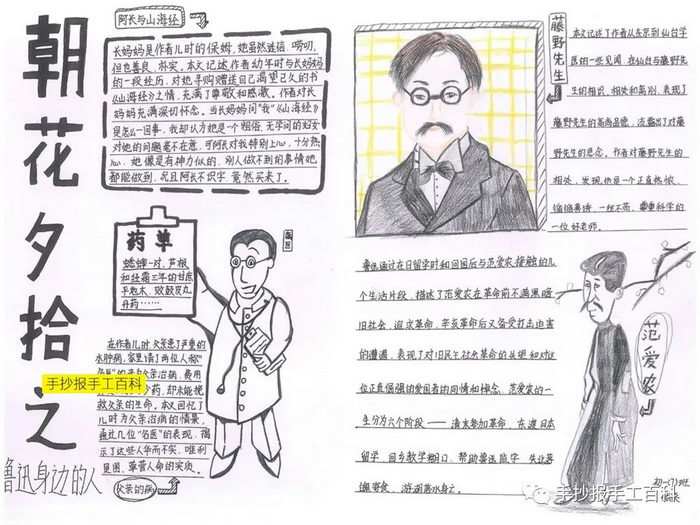 朝花夕拾之
鲁迅身边的人
阿长与山海经
长妈妈是作者儿时的保姆,她虽然迷信、唠叨,
但也善良、朴实。本文记述作者幼年时与长妈妈
的一段经历,对她寻购赠送自己渴望已久的书
《山海经》之情,充满了尊敬和感激。作者对长
妈妈充满深切怀念。当长妈妈问“我”《山海经》
是怎么一回事,我却认为她是个粗俗、无学问的妇女
对她的问题毫不在意,可阿长对我特别上心,十分热
心,她像是有神力似的,别人做不到的事情她
都能做到,况且阿长不识字 竟然买来了。
药单
蟋蟀一对、芦根
和经霜三年的甘蔗
平地木、败鼓皮丸
丹药……
在作者儿时父亲患了严重的
水肿病,家里请了两位人称“
父亲治病,费用
药,却未能挽
救父亲的生命。本文回忆了
儿时为父亲治病的情景,
几位“名医”的表现,揭
示了这些人华而不实、唯利
是图、草菅人命的实质。
父亲的病
手抄报手工百科
藤野先生
本文记述了作者从东京到仙台学
医的一些见闻,在仙台与藤野先
生的相识、相处和离别,表现了
藤野先生的高尚品德,流露出了对藤
野先生的思念。作者对藤野先生的
相处,发现他是一个正直热忱、
一位好老师。
鲁迅通过在日留学时和回国后与范爱农接触的几
个生活片段,描述了范爱农在革命前不满黑暗
旧社会,追求革命,辛亥革命后又备受打击迫害
的遭遇,表现了对旧民主社会革命的失望和对这
位正直倔强的爱国者的同情和悼念。范爱农的一
生分为六个阶段——清末参加革命、东渡日本
留学、回乡教学糊口、帮助
范爱农
初一(7)班
手抄报手工百科